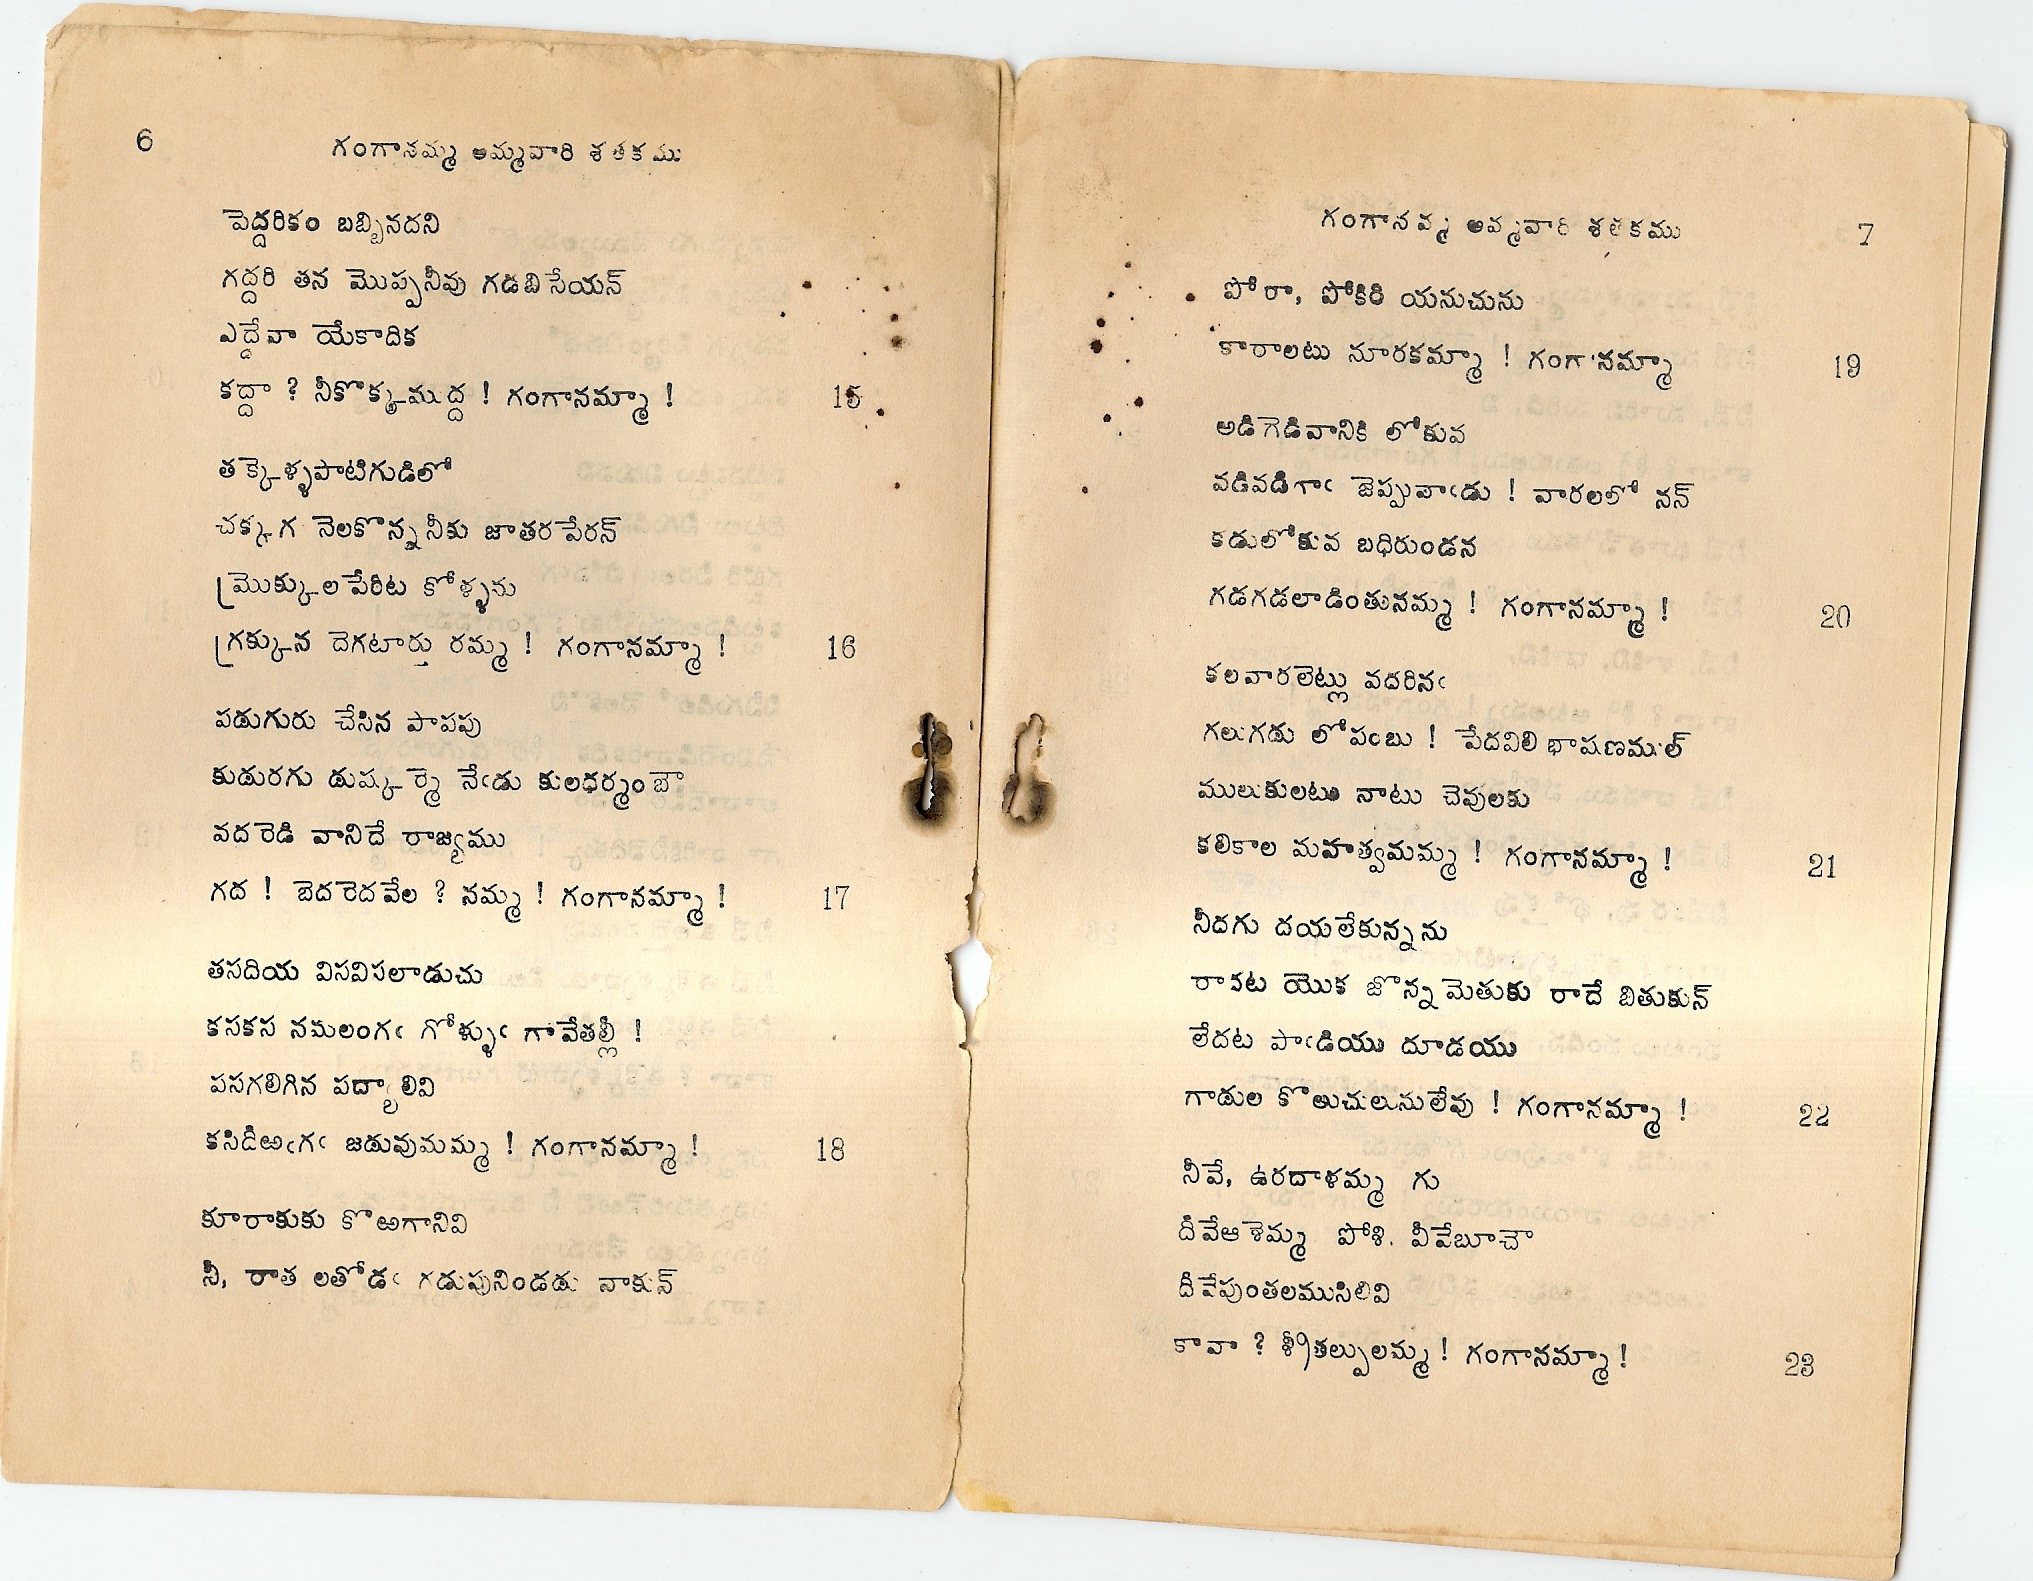 6
గంగానమ్మ అమ్మవారి శతకము
పెద్దరికం బబ్బినదని
గద్దరి తన మొప్పనీవు గడబిసేయన్
ఎద్దేవా యేకాదిక
కద్దా ? నీకొక్కముద్ద ! గంగానమ్మా ! 15
తక్కెళ్ళపాటిగుడిలో
చక్కగ నెలకొన్న నీకు జాతరపేరన్
మ్రొక్కులపేరిట కోళ్ళను
గ్రక్కున దెగటార్తు రమ్మ ! గంగానమ్మా ! 16
పదుగురు చేసిన పాపపు
కుదురగు దుష్కర్మె నేఁడు కులధర్మంబౌ
వదరెడి వానిదే రాజ్యము
గద ! బెదరెదవేల ? నమ్మ ! గంగానమ్మా ! 17
తసదియ విసవిసలాడుచు
కసకస నమలంగఁ గోళ్ళుఁ గావేతల్లీ !
పసగలిగిన పద్యాలివి
కసిదీఱఁగఁ జదువుమమ్మ ! గంగానమ్మా ! 18
కూరాకుకు కొఱగానివి
నీ, రాత లతోడఁ గడుపునిండదు నాకున్
గంగానమ్మ అమ్మవారి శతకము
7
పోరా, పోకిరి యనుచును
కారాలటు నూరకమ్మా ! గంగానమ్మా 19
అడిగెడివానికి లోకువ
వడివడిగాఁ జెప్పువాఁడు ! వారలలో నన్
కడులోకువ బధిరుండన
గడగడలాడింతునమ్మ ! గంగానమ్మా ! 20
కలవారలెట్లు వదరినఁ
గలుగదు లోపంబు ! పేదవిలి భాషణముల్
ములుకులటు నాటు చెవులకు
కలికాల మహత్వమమ్మ ! గంగానమ్మా ! 21
నీదగు దయలేకున్నను
రాదట యొక జొన్నమెతుకు రాదే బితుకున్
లేదట పాఁడియు దూడయు
గాదుల కొఱుచులునులేవు ! గంగానమ్మా ! 22
నీవే, ఉరదాళమ్మ గు
దీవేఆశెమ్మ పోశి. వీవేబూచౌ
దీవేపుంతలముసిలివి
కావా ? శ్రీతల్పులమ్మ ! గంగానమ్మా ! 23